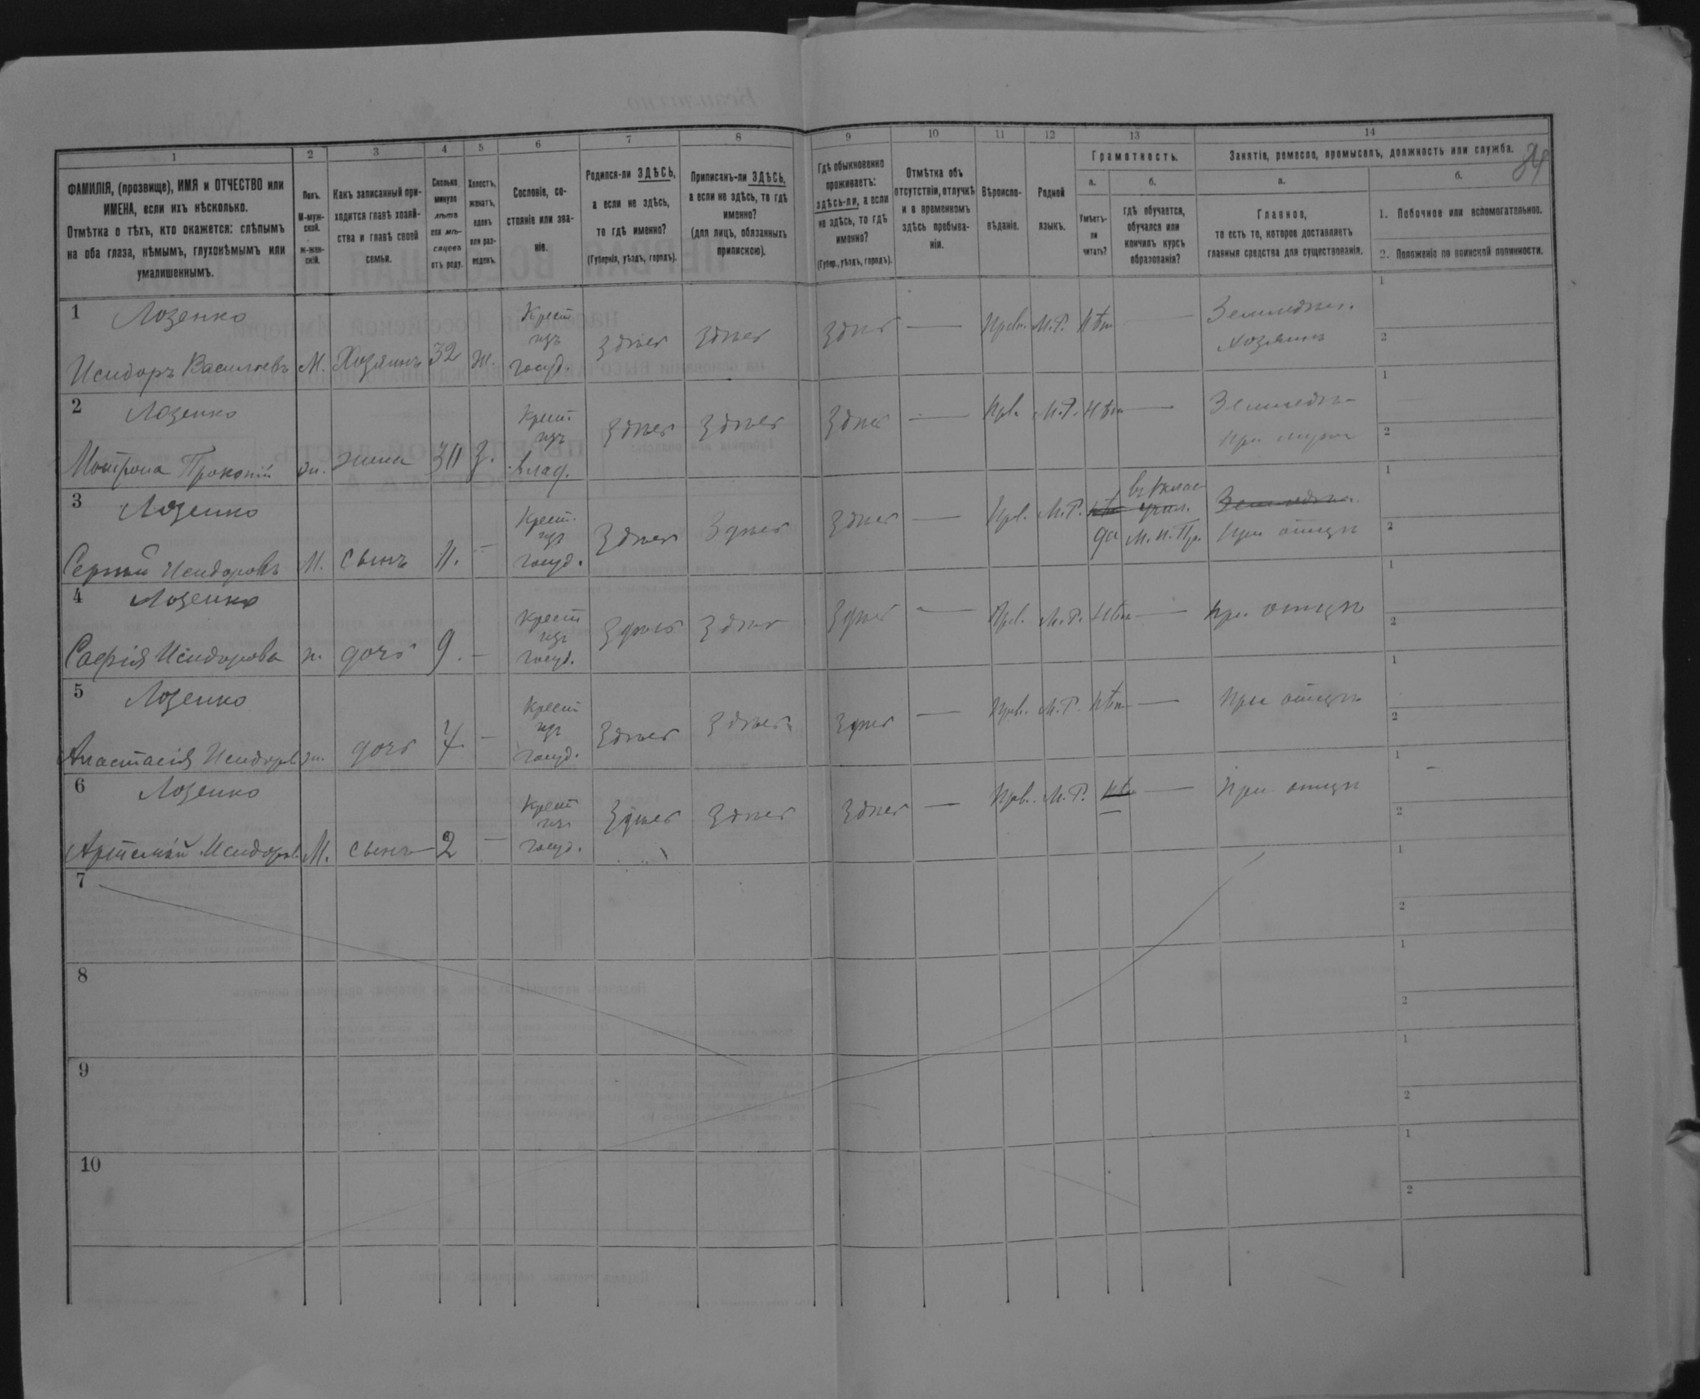 1 2 3 4 5 6 7 8 9 10 11 12 13 14
ФАМИЛІЯ, (прозвище), ИМЯ и ОТЧЕСТВО или
ИМЕНА, если ихъ нѣсколько.
Отмѣтка о тѣхъ, кто окажется: слѣпымъ
на оба глаза, нѣмымъ, глухонѣмымъ или
умалишеннымъ.
Полъ.
М-муж-
ской.
ж-жен-
скій.
Какъ записанный при-
ходится главѣ хозяй-
ства и главѣ своей
семьи.
Сколько
минуло
лѣтъ
или мѣ-
сяцевъ
отъ роду.
Холостъ,
женатъ,
вдовъ
или раз-
веденъ.
Сословіе, со-
стояніе или зва-
ніе.
Родился-ли ЗДѢСЬ,
а если не здѣсь,
то гдѣ именно?
(Губернія, уѣздъ, городъ).
Приписанъ-ли ЗДѢСЬ,
а если не здѣсь, то гдѣ
именно?
(для лицъ, обязанныхъ
припискою).
Гдѣ обыкновенно
проживаетъ:
здѣсь-ли, а если
не здѣсь, то гдѣ
именно?
(Губер., уѣздъ, городъ).
Отмѣтка объ
отсутствіи, отлучкѣ
и о временномъ
здѣсь пребыва-
ніи.
Вѣроиспо-
вѣданіе.
Родной
языкъ.
Грамотность.
а.
Умѣетъ-
ли
читать?
б.
гдѣ обучается,
обучался или
кончилъ курсъ
образованія?
Занятіе, ремесло, промыселъ, должность или служба.
а.
Главное,
то есть то, которое доставляетъ
главныя средства для существованія.
б.
1. Побочное или вспомогательное.
2. Положеніе по воинской повинности.
1 Лозенко
Исидоръ Васильевъ М. Хозяинъ 32 ж.
Крест
изъ
госуд.
Здѣсь Здѣсь Здѣсь — Прав. М.Р. Нѣт —
Земледѣл.
Хозяин
1
2
2 Лозенко
Мотрона Прокопій жен. жена 30 З.
Крест
изъ
влад.
Здѣсь Здѣсь Здѣсь — Прв. М.Р. Нѣт —
Земледѣ-
При мужѣ
1
2
3 Лозенко
Сергѣй Исидоровъ М. сынъ 11. —
Крест.
изъ
госуд.
Здѣсь Здѣсь Здѣсь — Прв. М.Р. нѣт
да
въ 1 клас
учил.
М. Н. Пр.
Земледѣл.
При отцѣ
1
2
4 Лозенко
Софія Исидорова ж. дочь 9. —
Крест
изъ
госуд.
Здѣсь Здѣсь Здѣсь — Прв. М.Р. Нѣт — При отцѣ
1
2
5 Лозенко
Анастасія Исидоров. ж. дочь 7. —
Крест
изъ
госуд.
Здѣсь Здѣсь Здѣсь — Прв. М.Р. Нѣт — При отцѣ
1
2
6 Лозенко
Артемій Исидоров. М. сынъ 2 —
Крест
из
госуд.
Здѣсь Здѣсь Здѣсь — Прв. М.Р. Нѣ — При отцѣ
1
2
7
1
2
8
1
2
9
1
2
10
1
2